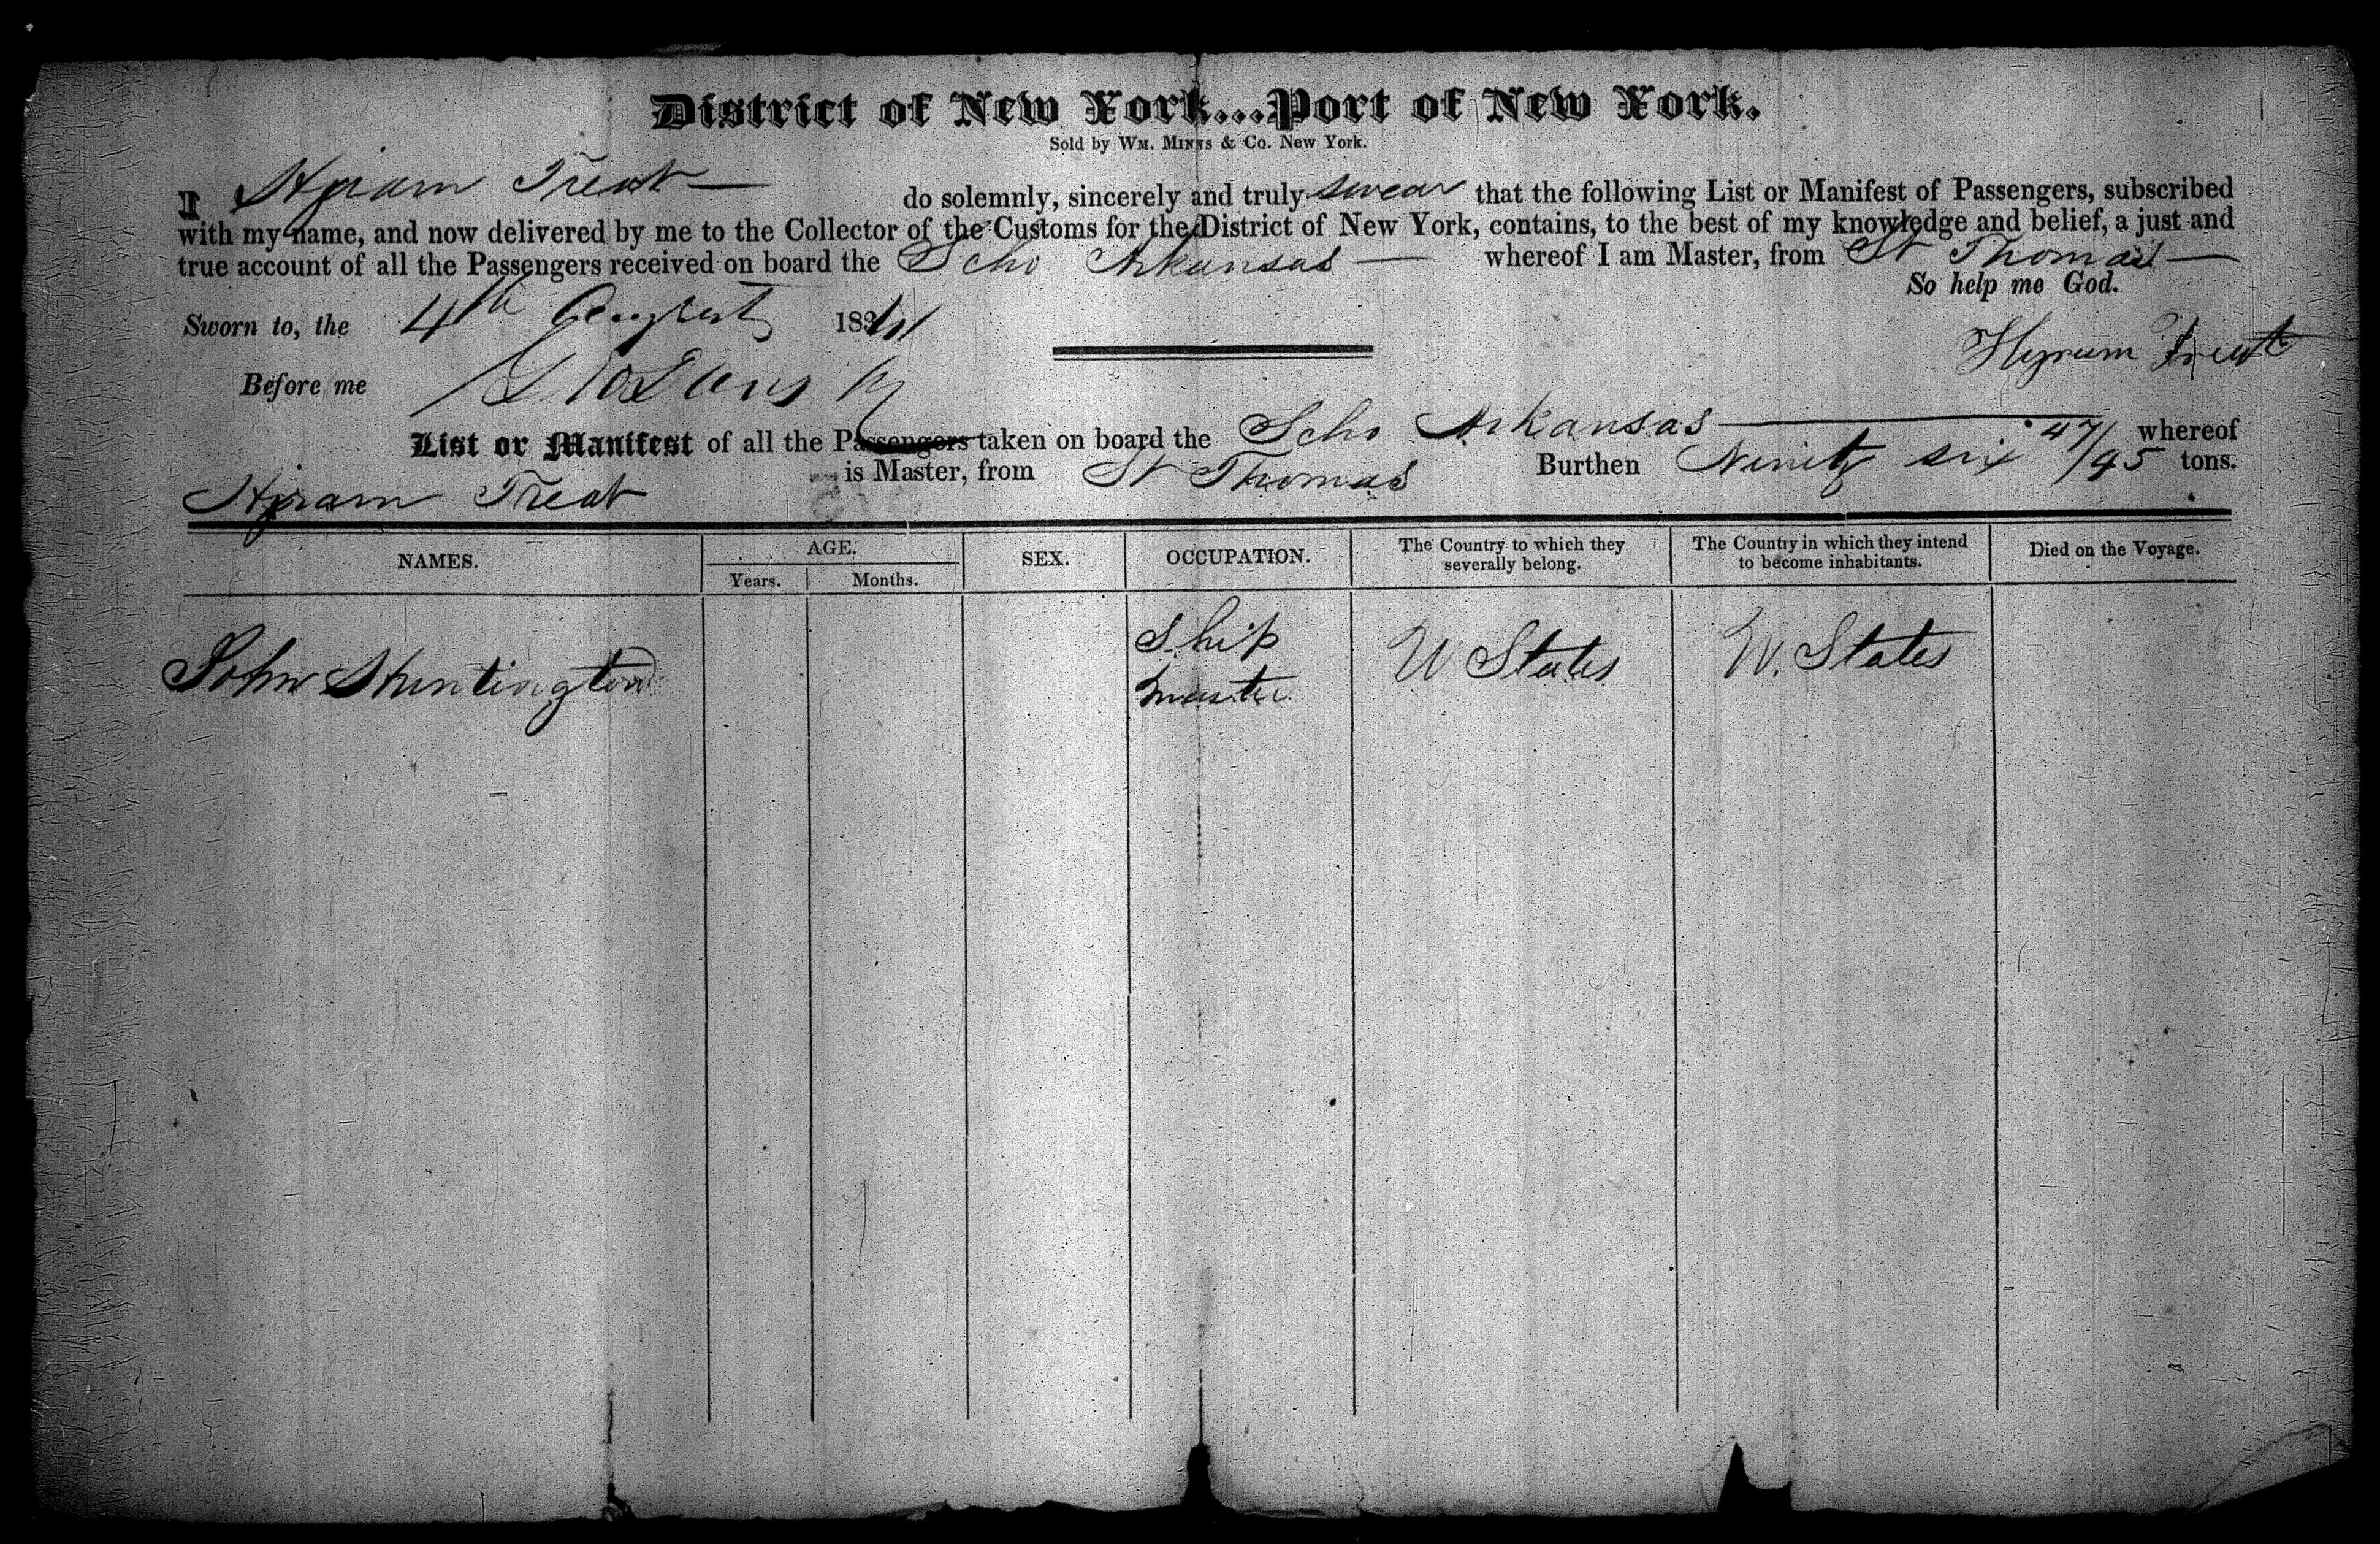 District of New York...Port of New York.
Sold by WM. MINNS & Co. New York.
I Hyram Treat do solemnly, sincerely and truly swear that the following List or Manifest of Passengers, subscribed
with my name, and now delivered by me to the Collector of the Customs for the District of New York, contains, to the best of my knowledge and belief, a just and
true account of all the Passengers received on board the Schr Arkansas whereof I am Master, from St Thomas
So help me God.
Sworn to, the 4th August 1841
Hyrum Treat
Before me
List or Manifest of all the Passengers taken on board the Schr Arkansas whereof
Hyram Treat is Master, from St Thomas Burthen Ninity six 47/95 tons.
NAMES. AGE. SEX. OCCUPATION. The Country to which they severally belong. The Country in which they intend to become inhabitants. Died on the Voyage.
Years. Months.
John Huntington Ship master U States U. States